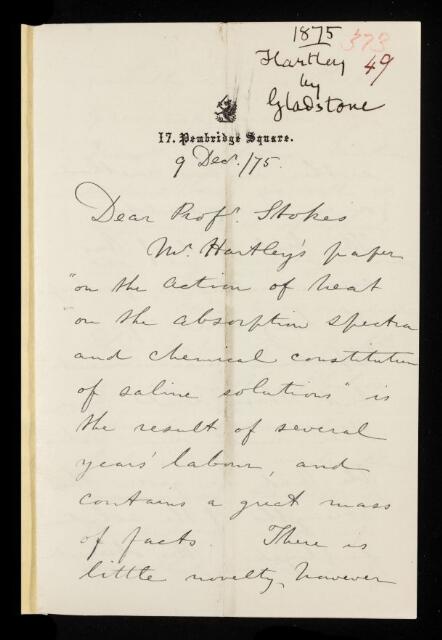 1875 373
Hartley 49
by
Gladstone
17. Pembridge Square.
9 Decr. /75.
Dear Profr. Stokes
Mr. Hartley's paper
"on the action of heat
on the absorption spectra
and chemical constitution
of saline solutions" is
the result of several
years' labour, and
contains a great mass
of facts. There is
little novelty, however